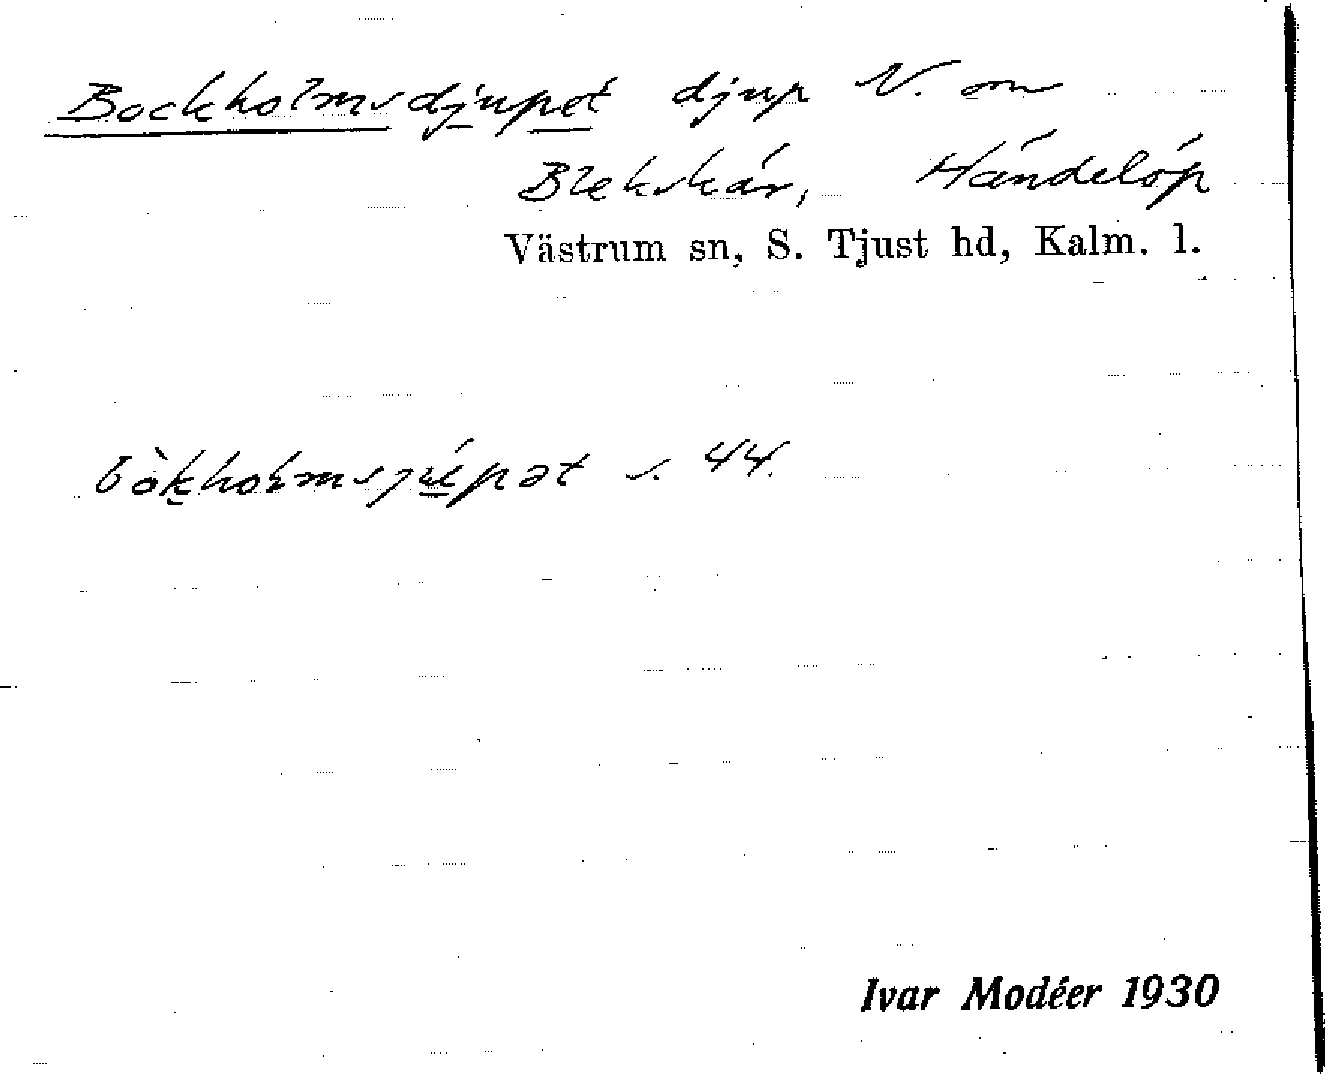 Bockholmsdjupet djup N. om
Blekskär, Händelöp
Västrum sn, S. Tjust hd, Kalm. l.
bòkholmsjúpət s. 44.
Ivar Modéer 1930